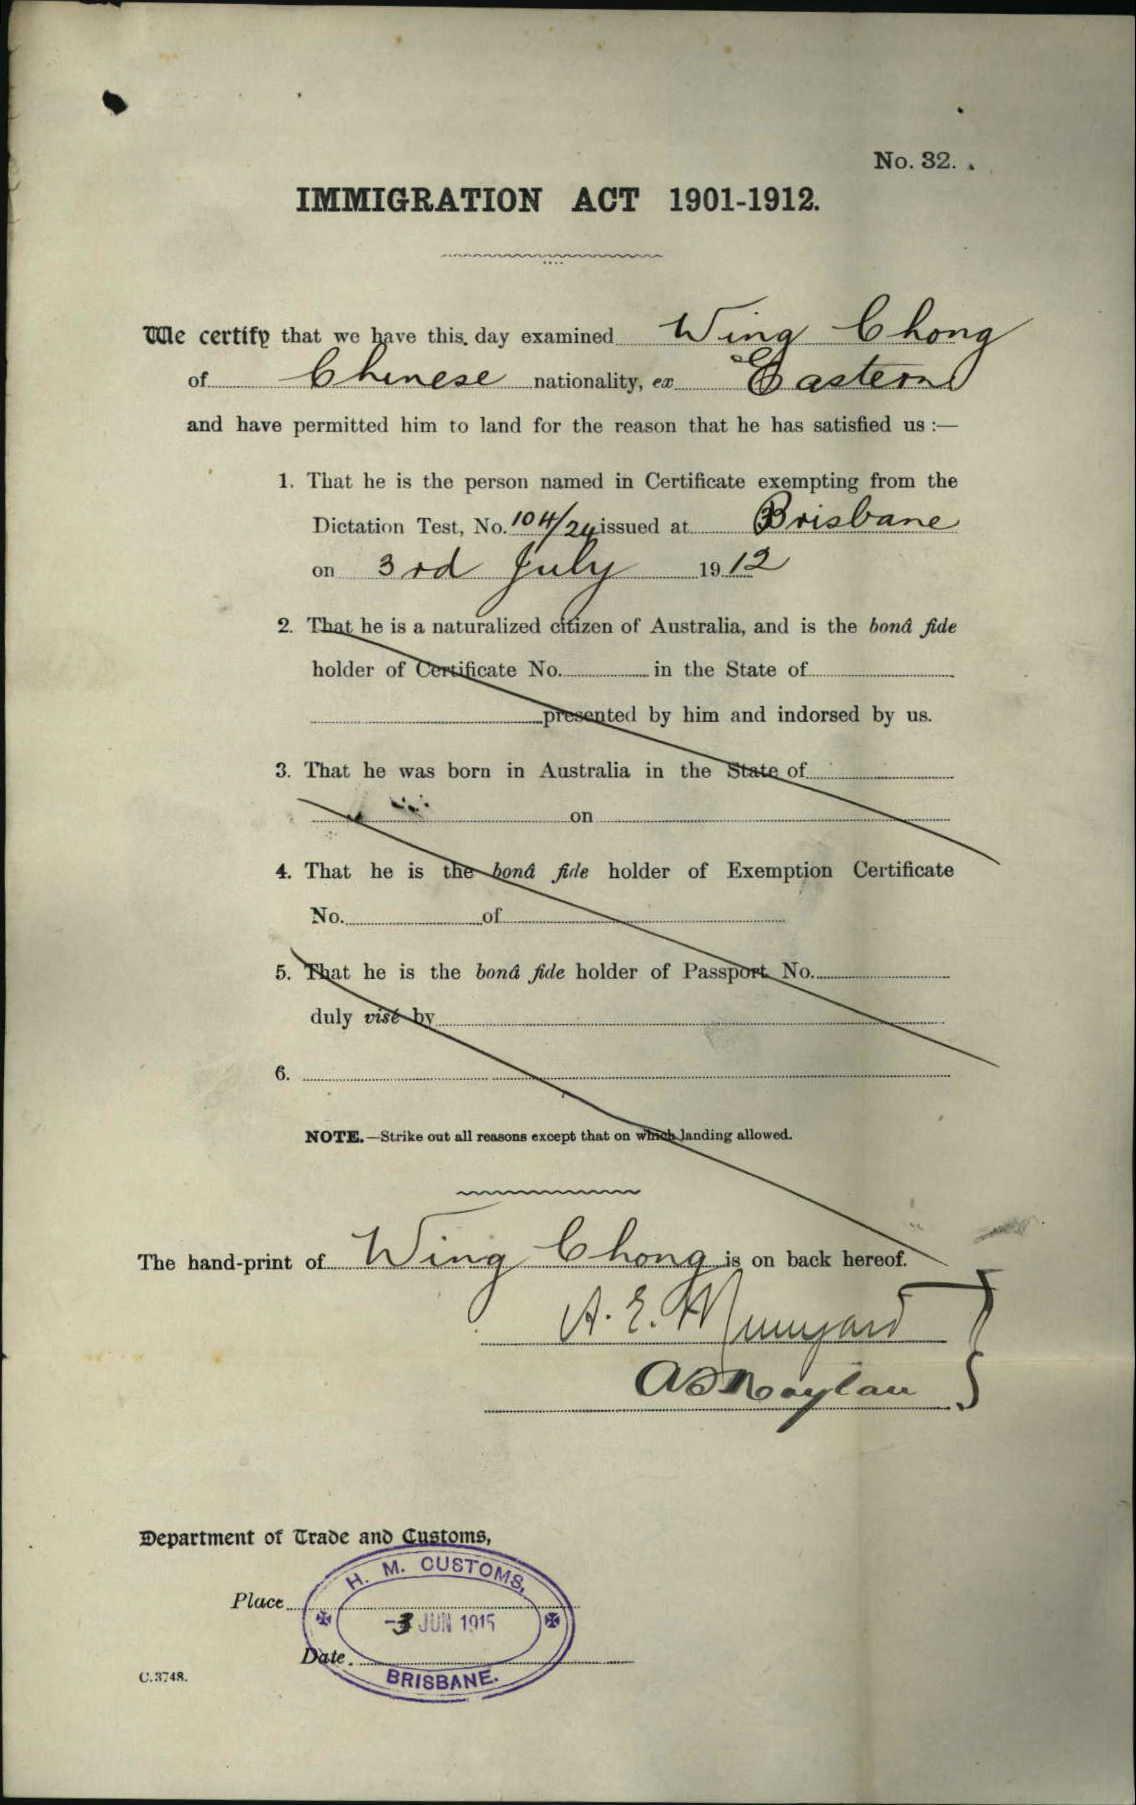 No. 32.
IMMIGRATION ACT 1901-1912.
We certify that we have this day examined Wing Chong
of Chinese nationality, ex Eastern
and have permitted him to land for the reason that he has satisfied us :—
1. That he is the person named in Certificate exempting from the
Dictation Test, No. 104/24 issued at Brisbane
on 3rd July 1912
2. That he is a naturalized citizen of Australia, and is the bonâ fide
holder of Certificate No. in the State of
presented by him and indorsed by us.
3. That he was born in Australia in the State of
on
4. That he is the bonâ fide holder of Exemption Certificate
No. of
5. That he is the bonâ fide holder of Passport No.
duly visé by
6.
NOTE.—Strike out all reasons except that on which landing allowed.
The hand-print of Wing Chong is on back hereof.
A. E.
Department of Trade and Customs,
H. M. CUSTOMS,
Place
-3 JUN 1915
Date
BRISBANE.
C.3748.